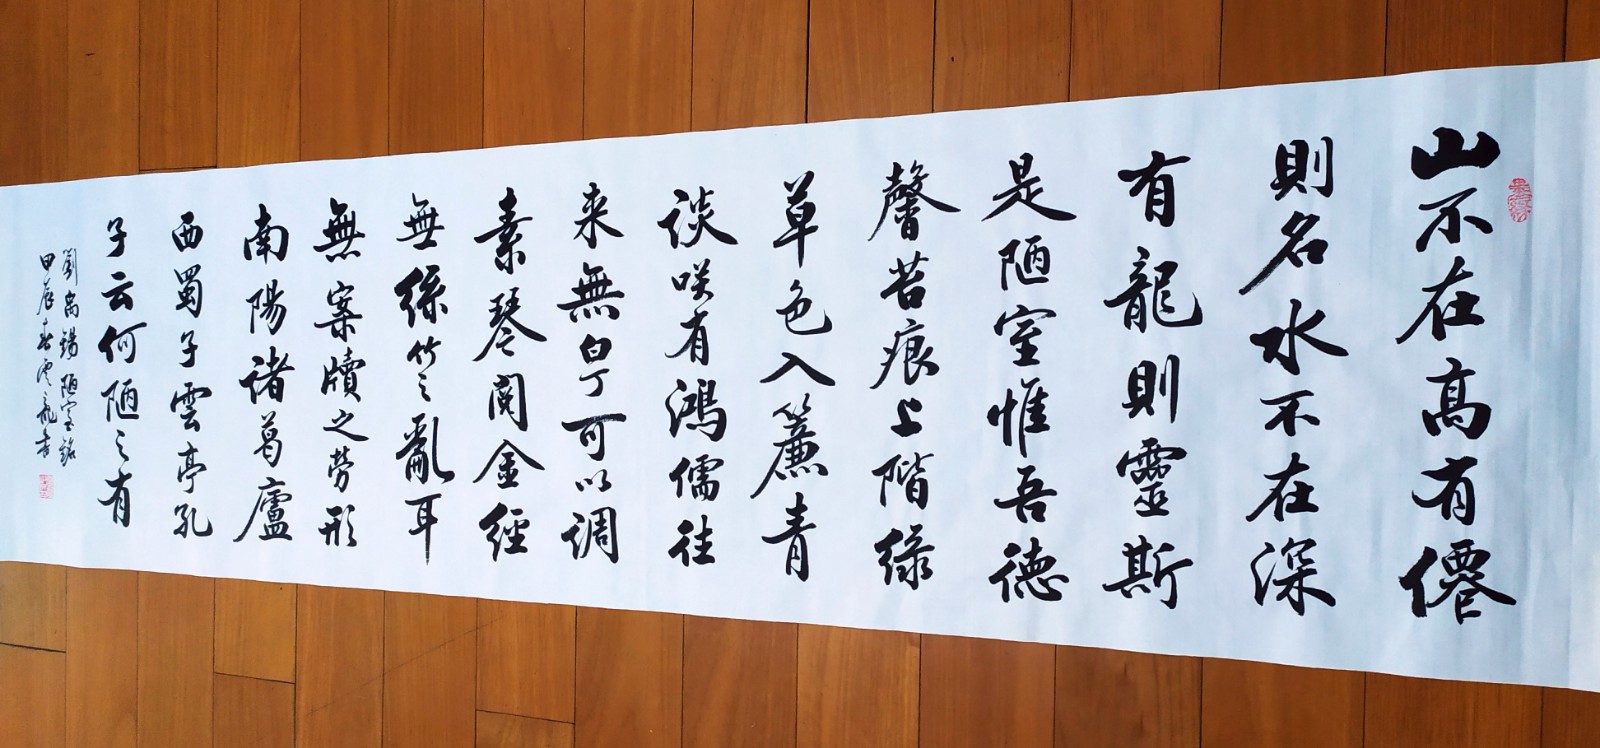 山不在高有僊
則名水不在深
有龍則靈斯
是陋室惟吾德
馨苔痕上階綠
草色入簾青
談咲有鴻儒往
来無白丁可以调
素琴閱金經
無絲竹之亂耳
無案牘之勞形
南陽諸葛廬
西蜀子雲亭孔
子云何陋之有
劉禹錫陋室銘
甲辰春雲龍书